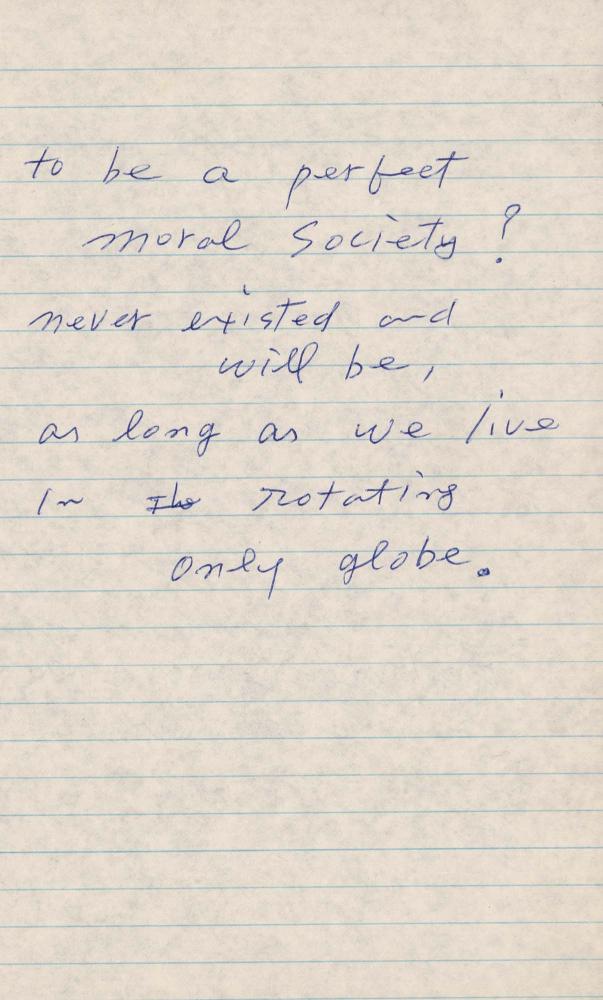 to be a perfect
moral Society?
never existed and
will be,
as long as we live
in the rotating
only globe.